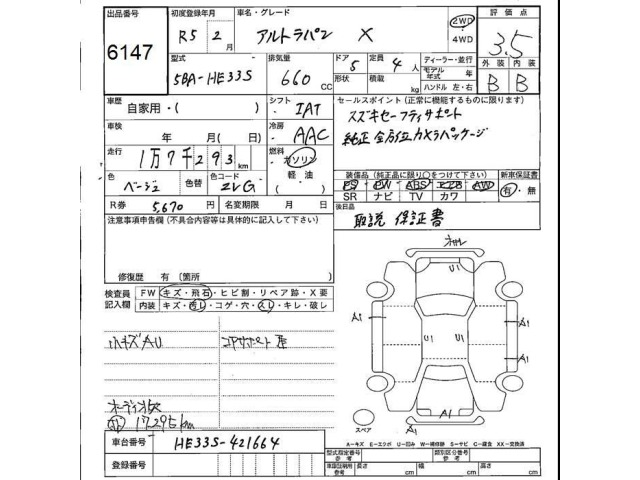 出品番号 初度登録年月 車名・グレード 評価点
6147 R5年 2月 アルトラパン X 2WD 4WD 3.5
型式 排気量 ドア 定員 ディーラー・並行 外装 内装
5BA-HE33S 660 CC 5 4人 モデル年式 年 B B
形状 積載 kg ハンドル 左・右
車歴 自家用・( ) シフト IAT セールスポイント(正常に機能するものに限ります)
車検 年 月( 日) 冷房 AAC スズキセーフティサポート
純正 全方位カメラパッケージ
走行 1万7千293km 燃料 ガソリン 軽油
色 ベージュ 色替 色コード ZVG ( ) 装備品(純正品に限り○をつけて下さい) 新車保証書
PS PW ABS エアB AW 有・無
SR ナビ TV カワ
R券 5,670円 名変期限 月 日 後日品
取説 保証書
注意事項申告欄(不具合内容等は具体的に記入して下さい)
修復歴 有(箇所 )
検査員記入欄 FW キズ・飛石・ヒビ割・リペア跡・X要
内装 キズ・汚レ・コゲ・穴・スレ・キレ・破レ
小キズAU
オーディオ欠
17,295km
車台番号 HE33S-421664
登録番号
U1
A1 U1 U1 A1
A1 A1
A1
A1
スペア
A-キズ E-エクボ U-凹み W-補修跡 S-サビ C-腐食 XX-交換済
型式指定番号 参考 類別区分番号 参考
車庫証明用 参考 長さ cm 幅 cm 高さ cm